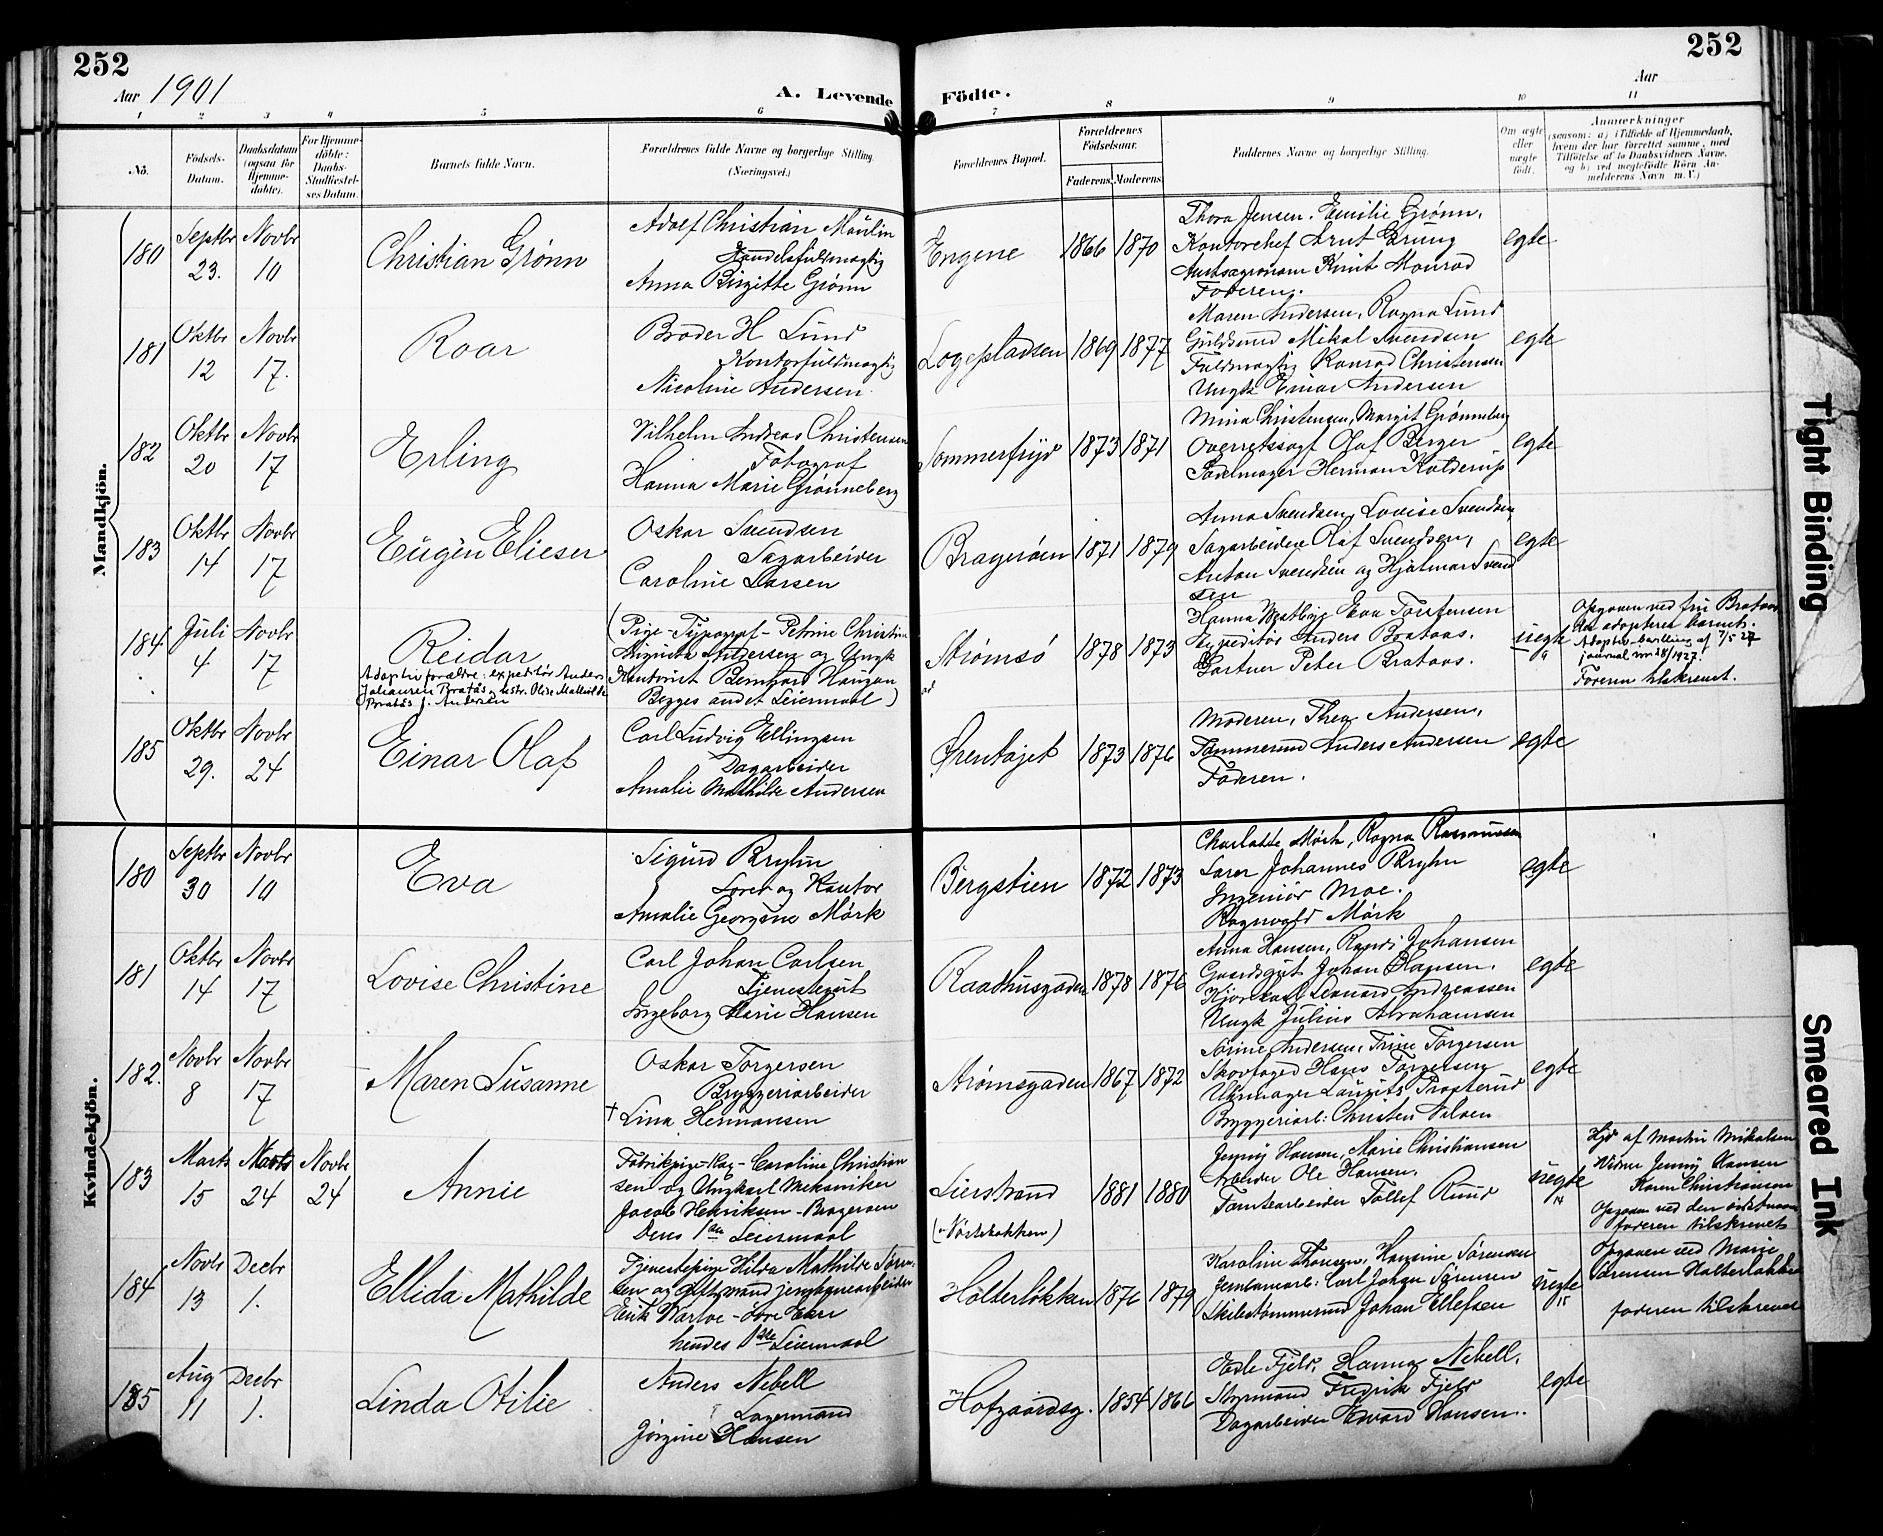 252
252
Aar 1901
A. Levende Födte.
Aar
1 2 3 4 5 6 7 8 9 10 11
No.
Födsels-Datum.
Daabsdatum (ogsaa for Hjemmedöbte).
For Hjemmedöbte: Daabs-Stadfæstelses Datum.
Barnets fulde Navn.
Forældrenes fulde Navne og borgerlige Stilling (Næringsvei.)
Forældrenes Bopæl.
Forældrenes Födselsaar.
Faderens. Moderens.
Faddernes Navne og borgerlige Stilling.
Om ægte eller uægte födt.
Anmærkninger
(saasom: a) i Tilfælde af Hjemmedaab, hvem der har forrettet samme, med Tilföielse af to Daabsvidners Navne, og b) ved uægtefödte Börn Anmelderens Navn m. V.)
Mandkjön.
180
Septbr 23.
Novbr 10
Christian Grönn
Adolf Christian Maulin
Handelsfuldmægtig
Anna Birgitte Grönn
Engene
1866 1870
Thora Jensen. Emilie Grønn.
Kontorchef Arnt Grung
Amtsagronom Knut Monrad
Faderen.
egte
181
Oktbr 12
Novbr 17.
Roar
Broder H Lund
Kontorfuldmægtig
Nicoline Andersen
Logepladsen
1869 1877
Maren Andersen, Ragna Lund
Guldsmed Mikal Svendsen
Fuldmægtig Konrad Christensen
Ungk Einar Andersen
egte
182
Oktbr 20
Novbr 17
Erling
Vilhelm Andreas Christensen
Fotograf
Hanna Marie Grønneberg
Sommerfryd
1873 1871
Mina Christensen, Margit Grønneberg
Overretssagf Olaf Berger
Sadelmager Herman Kolderup
egte
183
Oktbr 14
Novbr 17
Eugèn Elieser
Oskar Svendsen
Sagarbeider
Caroline Larsen
Bragerøen
1871 1879
Anna Svendsen, Lovise Svendsen,
Sagarbeidere Olaf Svendsen,
Anton Svendsen og Hjalmar Svend
sen
egte
184
Juli 4
Novbr 17
Reidar
Adoptivforældre: expeditör Anders
Johansen Bratås, hustr. Olise Mathilde
Bratås f. Andersen
(Pige - Typograf - Petrine Christine
Augusta Andersen og Ungk
Kontorist Bernhard Haugan
Begges andet Leiermaal)
Strømsø
1878 1873
Hanna Westbye Eva Torstensen
Expeditör Anders Brataas.
Gartner Peter Brataas.
uegte
9
Opgaven ved fru Brataas
der adopterer barnet.
Adoptiv-bevilling af 7/5 27
journal nr 28/1927.
Faderen tilskrevet.
185
Oktbr 29.
Novbr 24
Einar Olaf
Carl Ludvig Ellingsen
Dagarbeider
Amalie Mathilde Andersen
Ørentøjet
1873 1876
Moderen, Thea Andersen,
Tømmermd Anders Andersen
Faderen.
egte
Kvindekjön.
180
Septbr 30
Novbr 10
Eva
Sigurd Bryhn
Lærer og Kantor
Amalie Georgine Mörk
Bergstien
1872 1873
Charlotte Mörk, Ragna Rasmussen
Lærer Johannes Bryhn
Ingeniör Moe.
Ragnvald Mörk
egte
181
Oktbr 14
Novbr 17
Lovise Christine
Carl Johan Carlsen
Tjenestegut
Ingeborg Marie Hansen
Raadhusgaden
1878 1876
Anna Hansen, Ragndi Johansen
Gaardsgut Johan Hansen.
Kjørekarl Leonard Andreassen
Ungk Julius Abrahamsen
egte
182.
Novbr 8
Novbr 17
Maren Susanne
Oskar Torgersen
Bryggeriarbeider
† Lina Hermansen
Strømsgaden
1867 1872
Sörine Andersen, Trine Torgersen
Skovfoged Hans Torgersen
Uhrmager Lauritz Propterud
Bryggeriarb: Christen Nilsen
egte
183
Marts 15
Marts 24
Novbr 24
Annie
Fabrikpige - Kag - Caroline Christian
sen og Ungkarl Mekaniker
Jacob Henriksen - Bragerøen
Deres 1ste Leiermaal
Lierstrand
(Nöstebakken)
1881 1880
Jenny Hansen, Marie Christiansen
Arbeider Ole Hansen.
Tomtearbeider Tollef Ruud
uegte
14
Hjd af Martin Mikalsen
Vidner Jenny Hansen
Karen Christiansen
Opgaven ved den sidstnævnte
faderen tilskrevet
184
Novbr 13
Decbr 1.
Ellida Mathilde
Tjenestepige Hilda Mathilde Sören
sen og Giftmand jernbanearbeider
Erik Warloe - övre Eker
hendes 1ste Leiermaal
Holterløkken
1876 1879
Karoline Thoresen, Hansine Sörensen
Jernbanearb: Carl Johan Sørensen
Skibstømmermd Johan Ellefsen
uegte
15
Opgaven ved Marie
Sørensen Holterløkken
faderen tilskrevet
185
Aug 11
Decbr 1.
Linda Otilie
Anders Nebell
Lagermand
Jörgine Hansen
Hofgaardsg.
1854 1866
Edle Fjeld, Hanna Nebell,
Styrmand Fredrik Fjeld
Dagarbeider Edvard Hansen.
egte
Tight Binding
Smeared Ink